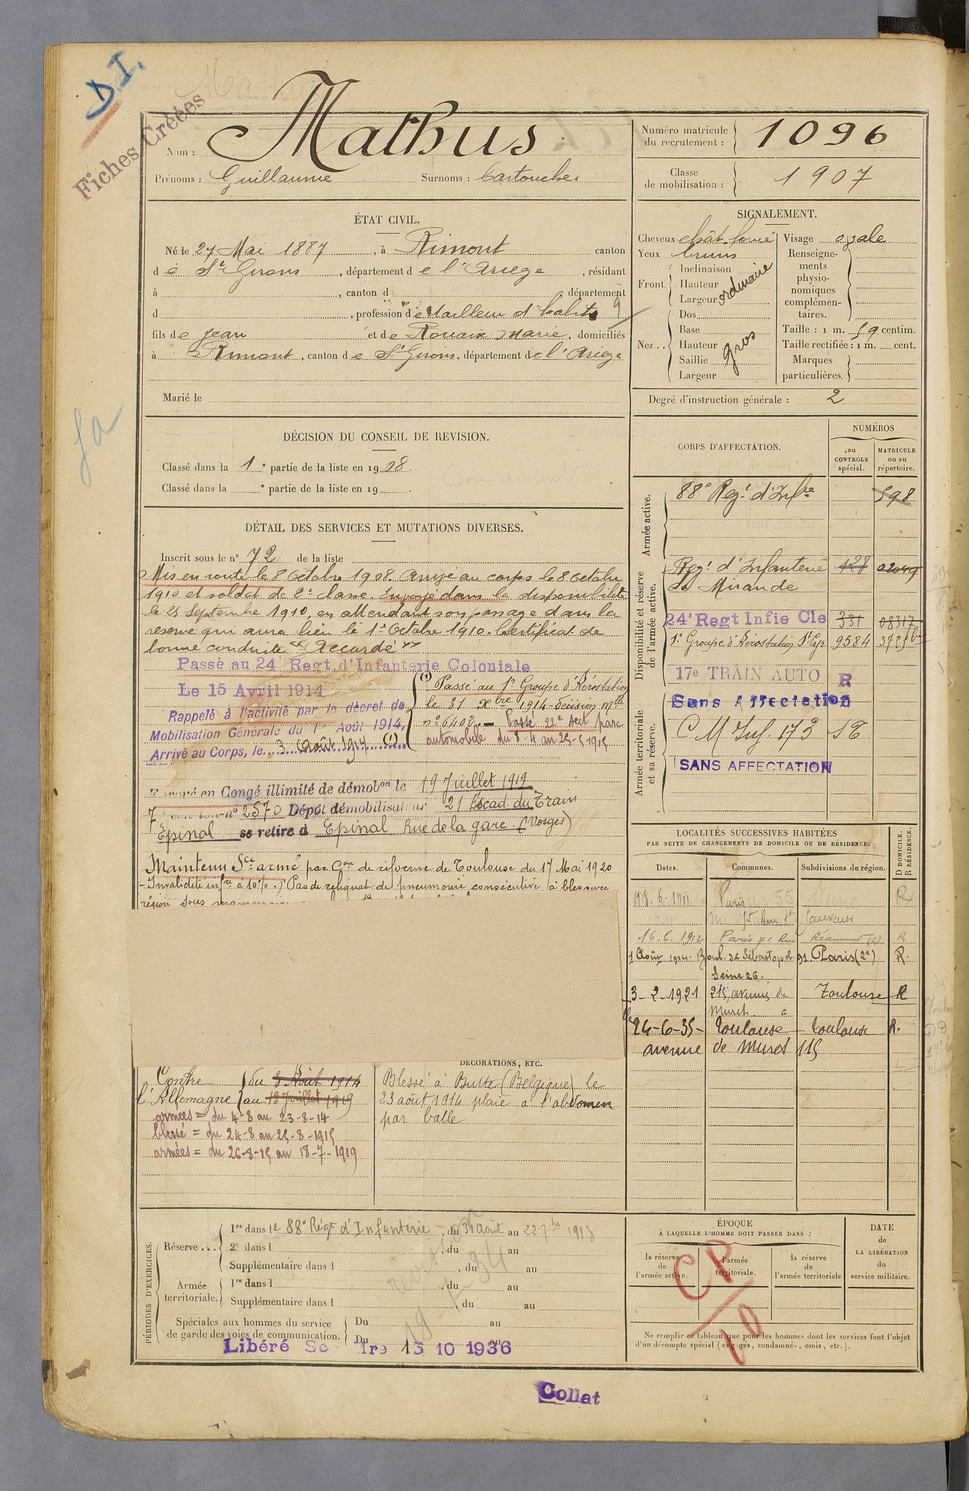 D.I.
Fiches Créées
Nom : Mathus
Prénoms : Guillaume Surnoms : Cartouche
Numéro matricule du recrutement : 1096
Classe de mobilisation : 1907
ÉTAT CIVIL.
Né le 27 Mai 1887, à Rimont canton
de St Girons, département de l'Ariège, résidant
à , canton d , département
d , profession de tailleur d'habits 9
fils de Jean et de Rouaix Marie, domiciliés
à Rimont, canton de St Girons, département de l'Ariège
Marié le
SIGNALEMENT.
Cheveux chât foncé Visage ovale
Yeux bruns
Front. Inclinaison Hauteur Largeur ordinaire
Renseignements physionomiques complémentaires.
Nez.. Dos Base Hauteur Saillie Largeur gros
Taille : 1 m. 59 centim.
Taille rectifiée : 1 m. cent.
Marques particulières.
Degré d'instruction générale : 2
DÉCISION DU CONSEIL DE REVISION.
Classé dans la 1e partie de la liste en 1908.
Classé dans la e partie de la liste en 19 .
DÉTAIL DES SERVICES ET MUTATIONS DIVERSES.
Inscrit sous le no 72 de la liste
Mis en route le 8 Octobre 1908. Arrivé au corps le 8 Octobre
1910 et soldat de 2e classe. Envoyé dans la disponibilité
le 25 Septembre 1910, en attendant son passage dans la
réserve qui aura lieu le 1er Octobre 1910. Certificat de
bonne conduite "Accordé"
Passé au 24 Regt. d'Infanterie Coloniale
Le 15 Avril 1914
Rappelé à l'activité par le décret de
Mobilisation Générale du 1er Août 1914,
Arrivé au Corps, le 3 Août 1914 (1).
(1) Passé au 1er Groupe d'Aérostation
le 31 Xbre 1914. Décision mlle
no 6402. — Passé 21e sect parc
automobile du
en Congé illimité de démobon le 19 Juillet 1919
2570 Dépôt démobilisateur 21 Escad. du Train
Epinal se retire à Epinal Rue de la gare. (Vosges)
Maintenu Sce armé par Con de réforme de Toulouse du 17 Mai 1920
- Invalidité infre à 10%. Pas de reliquat de pneumonie consécutive à blessure
région sous
CORPS D'AFFECTATION.
NUMÉROS
au CONTRÔLE spécial. MATRICULE ou au répertoire.
Armée active.
88e Regt d'Infie 598
Disponibilité et réserve de l'armée active.
Regt d'Infanterie 428
de Mirande
24e Regt Infie Cle 331
1er Groupe d'Aérostation 9584
17e TRAIN AUTO R
Sans Affectation
Armée territoriale et sa réserve.
C M Inf. 173
SANS AFFECTATION
LOCALITÉS SUCCESSIVES HABITÉES
PAR SUITE DE CHANGEMENTS DE DOMICILE OU DE RÉSIDENCE.
Dates. Communes. Subdivisions de région. D DOMICILE. R RÉSIDENCE.
Paris R
16.6.1912 Paris R
1 Août 1914. Boul. de Sébastopol 91 Paris (2e) R.
Seine 26.
3-2-1921 215, avenue de Muret Toulouse R
24-6-35- Toulouse Toulouse R.
avenue de Muret 115
DÉCORATIONS, ETC.
Contre l'Allemagne du 3 Août 1914
au 18 Juillet 1919
armées = du 4-8 au 23-8-14
blessé = du 24-8 au 25-8-1915
armées = du 26-8-15 au 18-7-1919
Blessé à (Belgique) le
23 août 1914 plaie à l'abdomen
par balle
PÉRIODES D'EXERCICES.
Réserve... 1re dans le 88e Régt d'Infanterie, du 31 août au 1913
2e dans l , du au
Supplémentaire dans l , du au
Armée territoriale. 1re dans l , du au
Supplémentaire dans l du au
Spéciales aux hommes du service de garde des voies de communication. Du au
Du au
Libéré 15 10 1936
ÉPOQUE
À LAQUELLE L'HOMME DOIT PASSER DANS :
la réserve de l'armée active. l'armée territoriale. la réserve de l'armée territoriale
DATE de LA LIBÉRATION du service militaire.
CP
10
Ne remplir ce tableau que pour les hommes dont les services font l'objet
d'un décompte spécial (engagés, condamnés, omis, etc.).
Collat